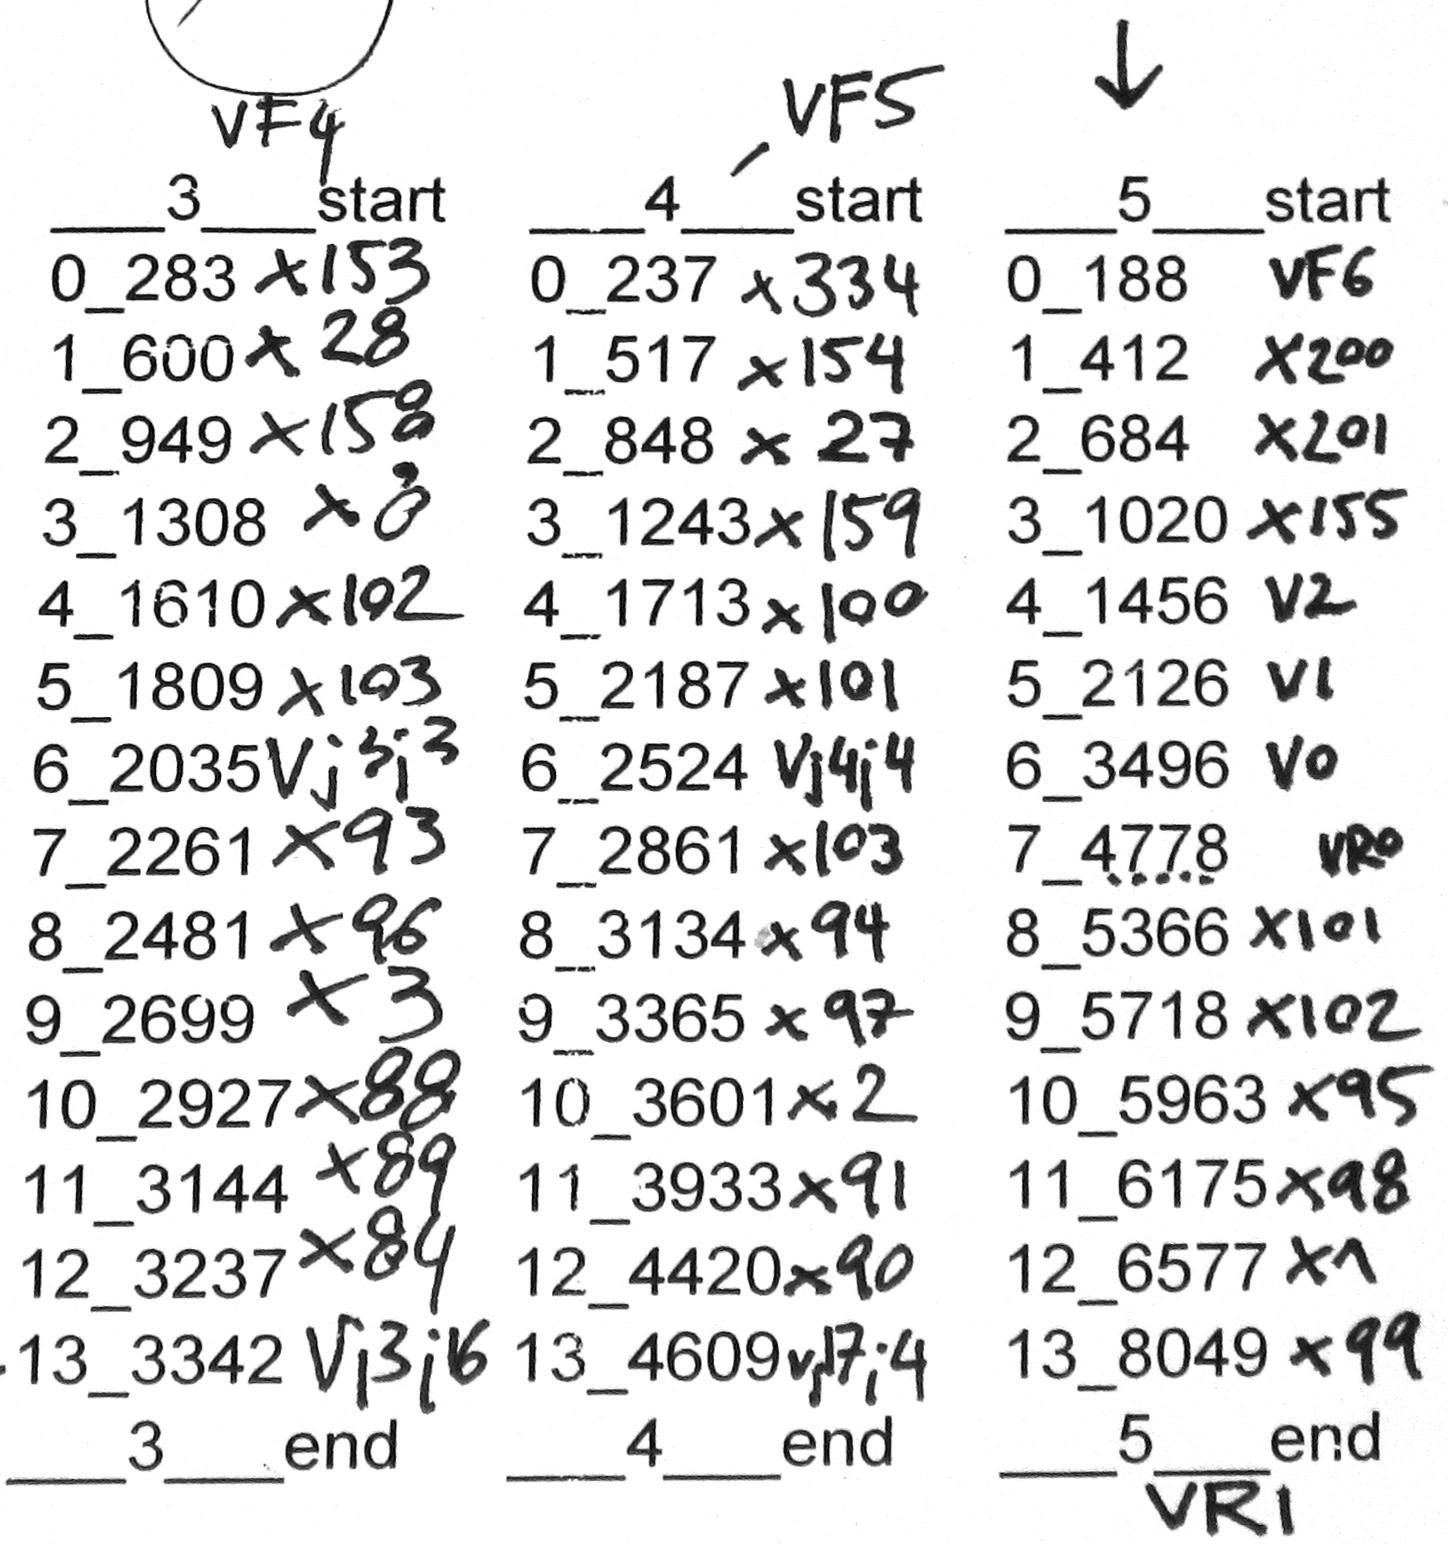 VF4
___3___start
0_283 x153
1_600 x 28
2_949 x158
3_1308
4_1610 x102
5_1809 x103
6_2035 Vj3j3
7_2261 x93
8_2481 x96
9_2699 x3
10_2927 x88
11_3144 x89
12_3237 x84
13_3342 Vj3j16
___3___end
VF5
___4___start
0_237 x334
1_517 x154
2_848 x 27
3_1243 x159
4_1713 x100
5_2187 x101
6_2524 Vj4j4
7_2861 x103
8_3134 x94
9_3365 x97
10_3601 x2
11_3933 x91
12_4420 x90
13_4609 vj17j4
___4___end
↓
___5___start
0_188 VF6
1_412 x200
2_684 x201
3_1020 x155
4_1456 V2
5_2126 V1
6_3496 V0
7_4778 VR0
8_5366 x101
9_5718 x102
10_5963 x95
11_6175 x98
12_6577 x1
13_8049 x99
___5___end
VR1